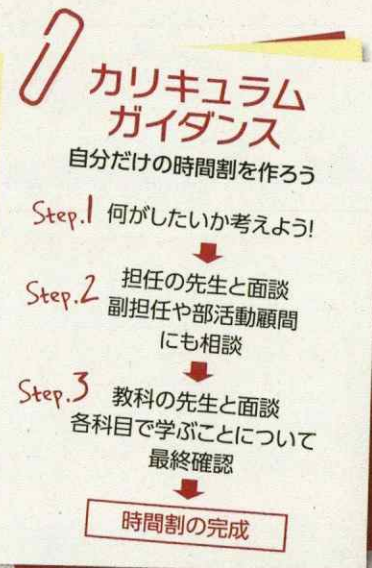 カリキュラム
ガイダンス
自分だけの時間割を作ろう
Step.1 何がしたいか考えよう!
Step.2 担任の先生と面談
副担任や部活動顧問
にも相談
Step.3 教科の先生と面談
各科目で学ぶことについて
最終確認
時間割の完成